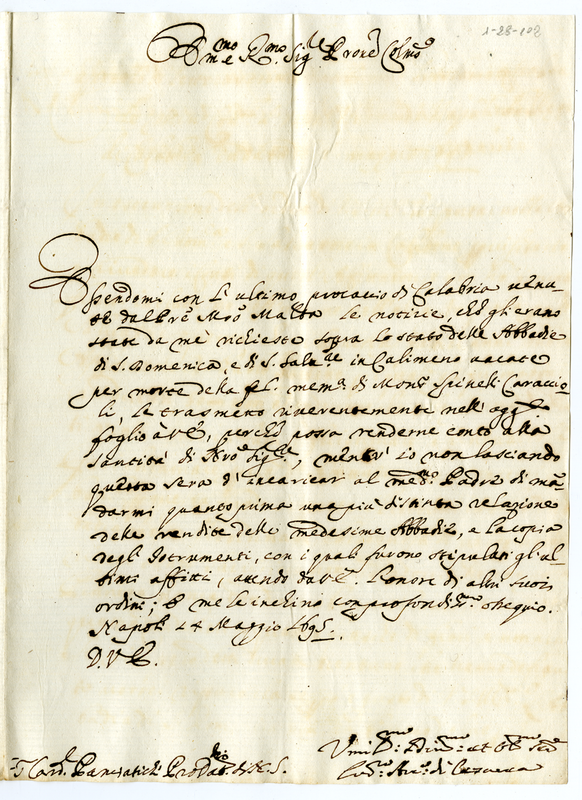 1-28-102
Em.mo e R.mo Sig.re Prone Colmo
Essendomi con l'ultimo procaccio di Calabria uenu-
te dal Pre Mro Matta le notizie, che gli erano
state da me richieste sopra lo stato delle Abbadie
di S. Domenica, e di S. Salu.re in Calimeno uacate
per morte della fel. mem.a di Mons.r Spinelli Caraccio-
li, le trasmetto riuerentemente nell'agg.to
foglio à V.E., perche possa renderne conto alla
Santità di Nro Sig.re, mentr' io non lasciando
questa sera d'incaricar al med.o Padre di ma-
darmi quanto prima una piu distinta relazione
delle rendite delle medesime Abbadie, e la copia
degli Istrumenti, con i quali furono stipulati gli ul-
timi affitti, attendo da V.E. l'onore di altri suoi
ordini; e me le inchino con profondiss.o ossequio.
Napoli 14 Maggio 1695.
D. V.E.
S. Card. Panciatichi ProDat.rio di N. S.
Umil.mo Diu.mo et Ob.mo Ser.